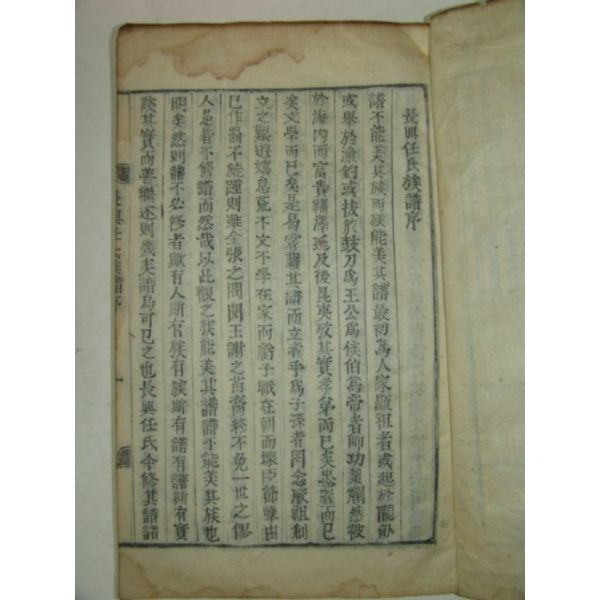 長興任氏族譜序
譜不能美其族而族能美其譜最初為人家顯祖者或起於隴畝
或舉於漁釣或拔於鼓刀為王公為侯伯為帝者師功業爛然被
於海內而富貴福澤延及後昆夷攷其實孝弟而已矣忠義而已
矣文學而已矣是曷嘗藉其譜而立者乎為子孫者罔念厥祖創
立之艱遊嬉怠荒不文不學在家而虧子職在朝而壞臣節孽由
已作罰不旋踵則雖金張之閥閱王謝之苗裔終不免一世之僇
人是皆不修譜而然哉以此觀之族能美其譜譜不能美其族也
明矣然則譜不必修者歟有人斯有族有族斯有譜有譜斯有實
踐其實而善繼述則幾矣譜烏可已之也長興任氏今修其譜譜
長興任氏族譜序 一